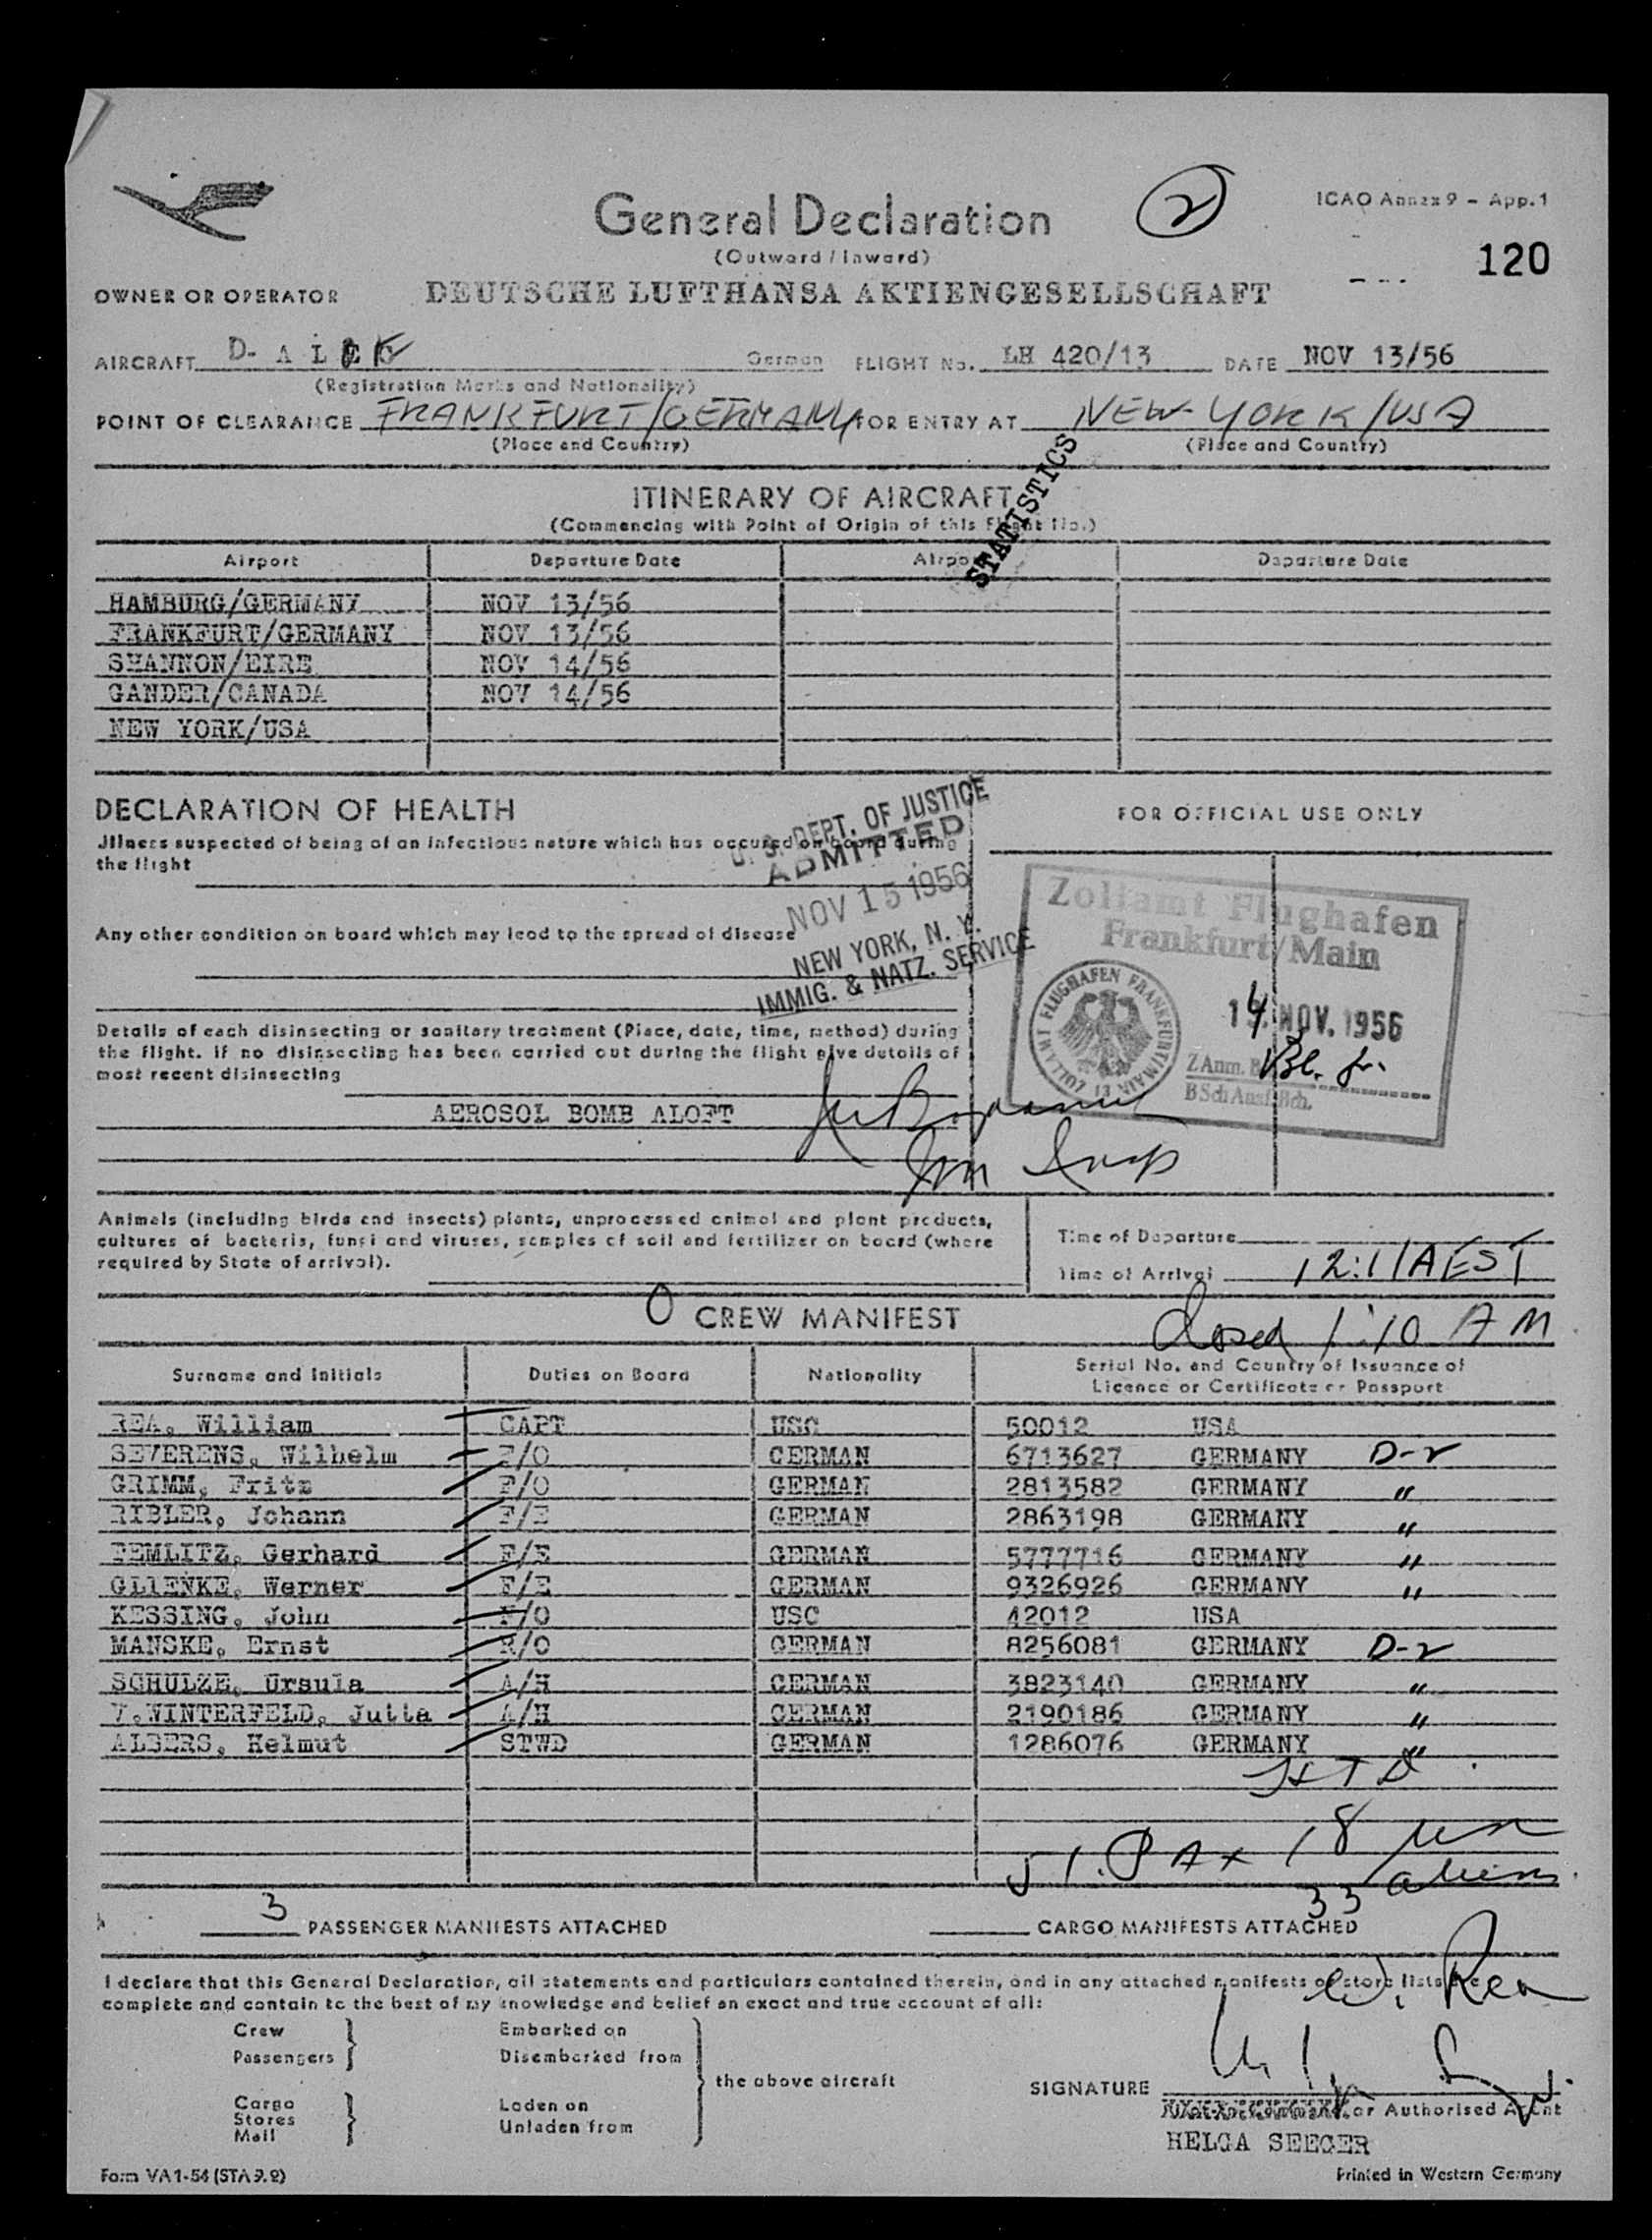 General Declaration
2
ICAO Annex 9 - App.1
(Outward / Inward)
120
OWNER OR OPERATOR DEUTSCHE LUFTHANSA AKTIENGESELLSCHAFT
AIRCRAFT D- A L German FLIGHT No. LH 420/13 DATE NOV 13/56
(Registration Marks and Nationality)
POINT OF CLEARANCE FRANKFURT/GERMANY FOR ENTRY AT NEW-YORK/USA
(Place and Country) (Place and Country)
STATISTICS
ITINERARY OF AIRCRAFT
(Commencing with Point of Origin of this Flight No.)
Airport Departure Date Airport Departure Date
HAMBURG/GERMANY NOV 13/56
FRANKFURT/GERMANY NOV 13/56
SHANNON/EIRE NOV 14/56
GANDER/CANADA NOV 14/56
NEW YORK/USA
DECLARATION OF HEALTH
FOR OFFICIAL USE ONLY
Illness suspected of being of an infectious nature which has occured on board during
the flight
U. S. DEPT. OF JUSTICE
ADMITTED
NOV 15 1956
NEW YORK, N. Y.
IMMIG. & NATZ. SERVICE
Any other condition on board which may lead to the spread of disease
Zollamt Flughafen
Frankfurt/Main
ZOLLAMT FLUGHAFEN FRANKFURT/MAIN 13
14. NOV. 1956
ZAnm.
BSchAusf.Bch.
Details of each disinsecting or sanitary treatment (Place, date, time, method) during
the flight. If no disinsecting has been carried out during the flight give details of
most recent disinsecting
AEROSOL BOMB ALOFT
Animals (including birds and insects) plants, unprocessed animal and plant products,
cultures of bacteria, fungi and viruses, samples of soil and fertilizer on board (where
required by State of arrival).
Time of Departure
Time of Arrival 12:11A EST
0 CREW MANIFEST
Closed 1:10 AM
Surname and Initials Duties on Board Nationality Serial No. and Country of Issuance of
Licence or Certificate or Passport
REA, William CAPT USC 50012 USA
SEVERENS, Wilhelm F/O GERMAN 6713627 GERMANY D-2
GRIMM, Fritz F/O GERMAN 2813582 GERMANY "
RIBLER, Johann F/E GERMAN 2863198 GERMANY "
TEMLITZ, Gerhard F/E GERMAN 5777716 GERMANY "
GLIENKE, Werner F/E GERMAN 9326926 GERMANY "
KESSING, John N/O USC 42012 USA
MANSKE, Ernst R/O GERMAN 8256081 GERMANY D-2
SCHULZE, Ursula A/H GERMAN 3823140 GERMANY "
V.WINTERFELD, Jutta A/H GERMAN 2190186 GERMANY "
ALBERS, Helmut STWD GERMAN 1286076 GERMANY "
51 PAX 18
33 aliens
3 PASSENGER MANIFESTS ATTACHED CARGO MANIFESTS ATTACHED
I declare that this General Declaration, all statements and particulars contained therein, and in any attached manifests or store lists are
complete and contain to the best of my knowledge and belief an exact and true account of all:
W. Rea
Crew Embarked on
Passengers Disembarked from
the above aircraft
Cargo Laden on
Stores
Mail Unladen from
SIGNATURE
or Authorised Agent
HELGA SEEGER
Form VA1-54 (STA 9.2)
Printed in Western Germany